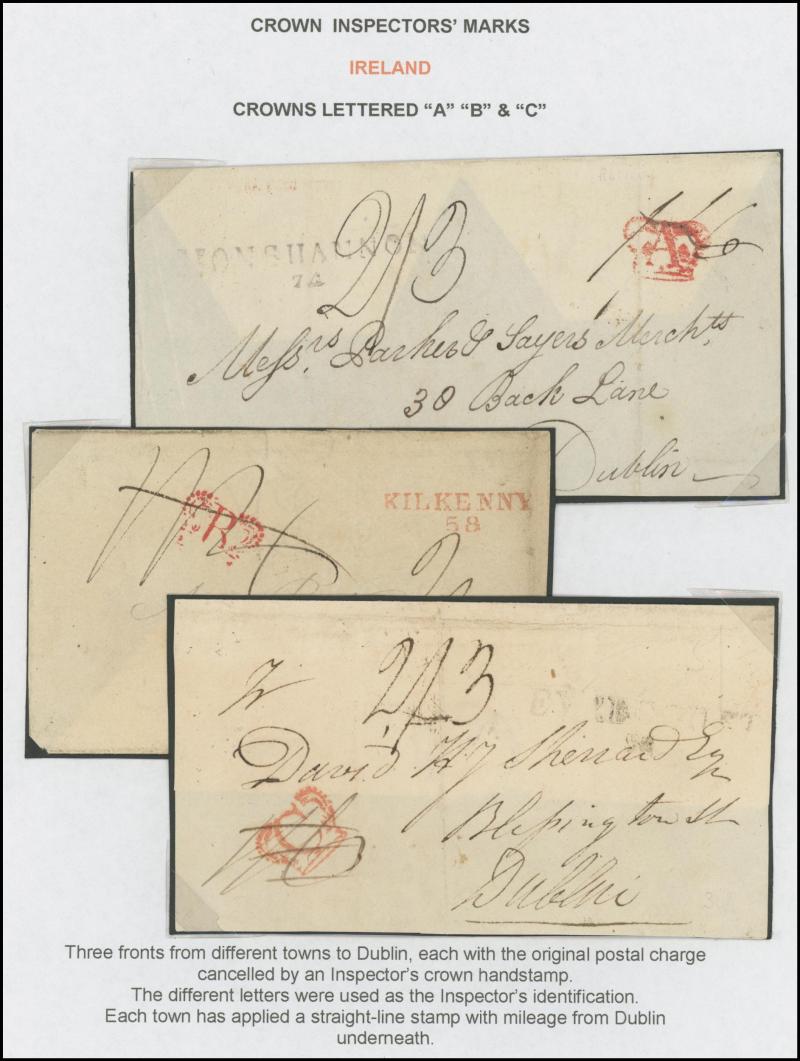 CROWN INSPECTORS' MARKS
IRELAND
CROWNS LETTERED “A” “B” & “C”
2/3
A
74
Messrs. Parker & Sayers Merchts
30 Back Lane
Dublin
KILKENNY
58
2/3
David Hy Sherrard Esq
Blessington St
Dublin
C
Three fronts from different towns to Dublin, each with the original postal charge
cancelled by an Inspector's crown handstamp.
The different letters were used as the Inspector's identification.
Each town has applied a straight-line stamp with mileage from Dublin
underneath.